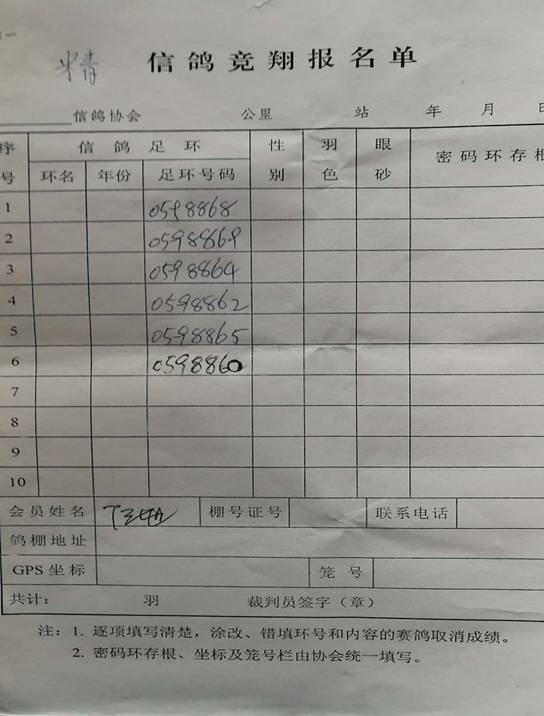 精 信鸽竞翔报名单
信鸽协会 公里 站 年 月 日
序号 信鸽足环 性别 羽色 眼砂 密码环存根
环名 年份 足环号码
1 0598868
2 0598869
3 0598864
4 0598862
5 0598865
6 0598860
7
8
9
10
会员姓名 棚号证号 联系电话
鸽棚地址
GPS坐标 笼号
共计: 羽 裁判员签字(章)
注:1. 逐项填写清楚,涂改、错填环号和内容的赛鸽取消成绩。
2. 密码环存根、坐标及笼号栏由协会统一填写。